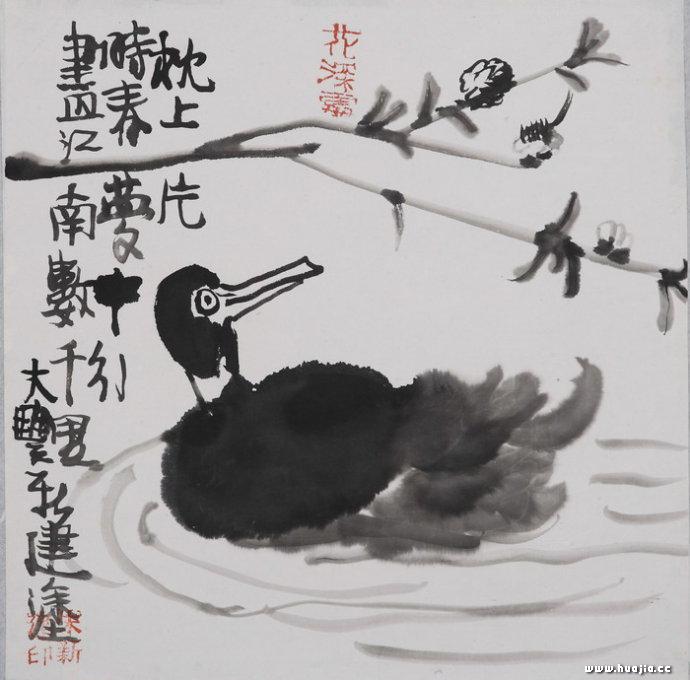 枕上片
時春夢中行
盡江南數千里
大豐新建塗
花深處
朱新建印
www.huajia.cc